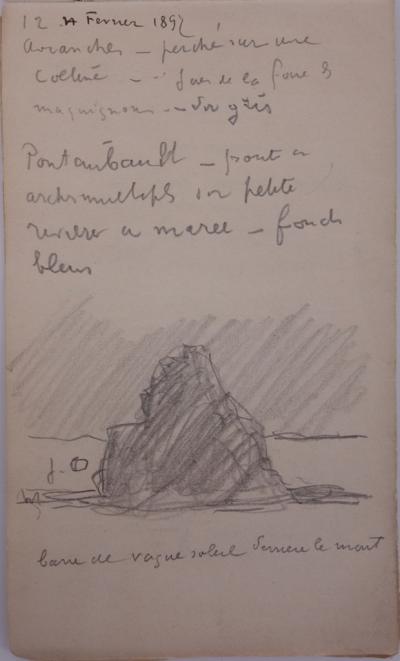 12 Fevrier 189
Avranches – perché sur une
Colline – jour de la foire &
maquignons – gris
Pontaubault – pont a
arches multiples sur petite
riviere a maree – fonds
bleus
barre de vague soleil derriere le mont